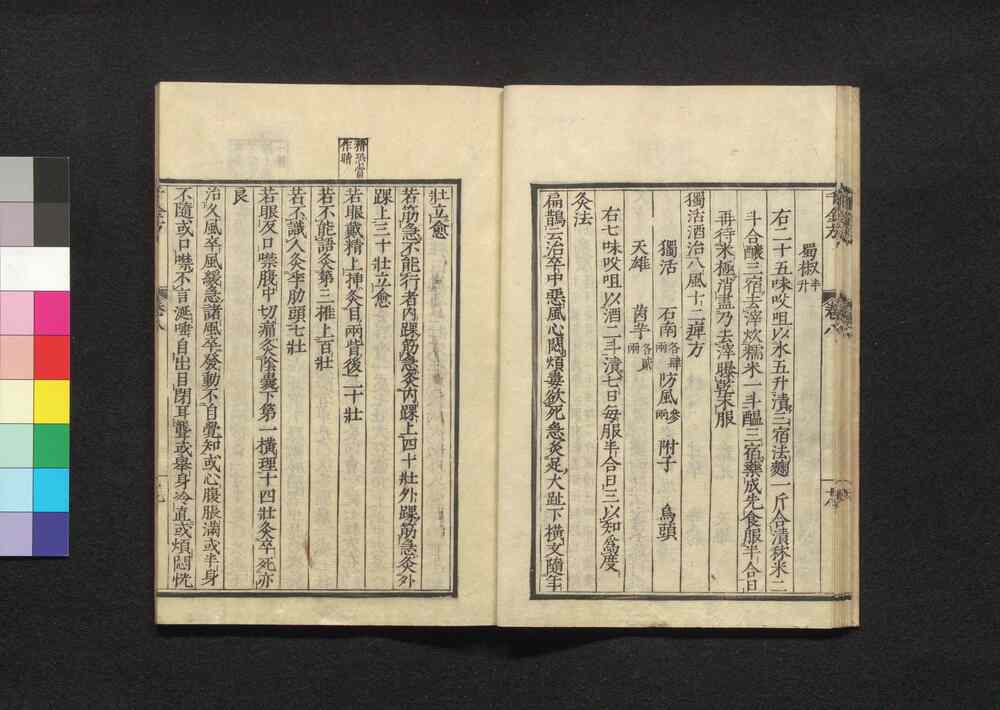 蜀椒半升
右二十五味㕮咀以水五升漬三宿法麴一斤合漬秫米二
斗合釀三宿去滓炊糯米一斗醖三宿藥成先食服半合日
再待米極消盡乃去滓曝乾末服
獨活酒治八風十二痺方
獨活 石南各肆兩 防風參兩 附子 烏頭
天雄 茵芋各貳兩
右七味㕮咀以酒二斗漬七日每服半合日三以知爲度
灸法
扁鵲云治卒中惡風心悶煩毒欲死急灸足大趾下橫文隨年
壯立愈
若筋急不能行者内踝筋急灸内踝上四十壯外踝筋急灸外
踝上三十壯立愈
若眼戴精上揷灸目兩眥後二十壯
若不能語灸第三椎上百壯
若不識人灸季肋頭七壯
若眼反口噤腹中切痛灸陰囊下第一橫理十四壯灸卒死亦
良
治久風卒風緩急諸風卒發動不自覺知或心腹脹滿或半身
不隨或口噤不言涎唾自出目閉耳聾或舉身冷直或煩悶恍
卷八
卷八